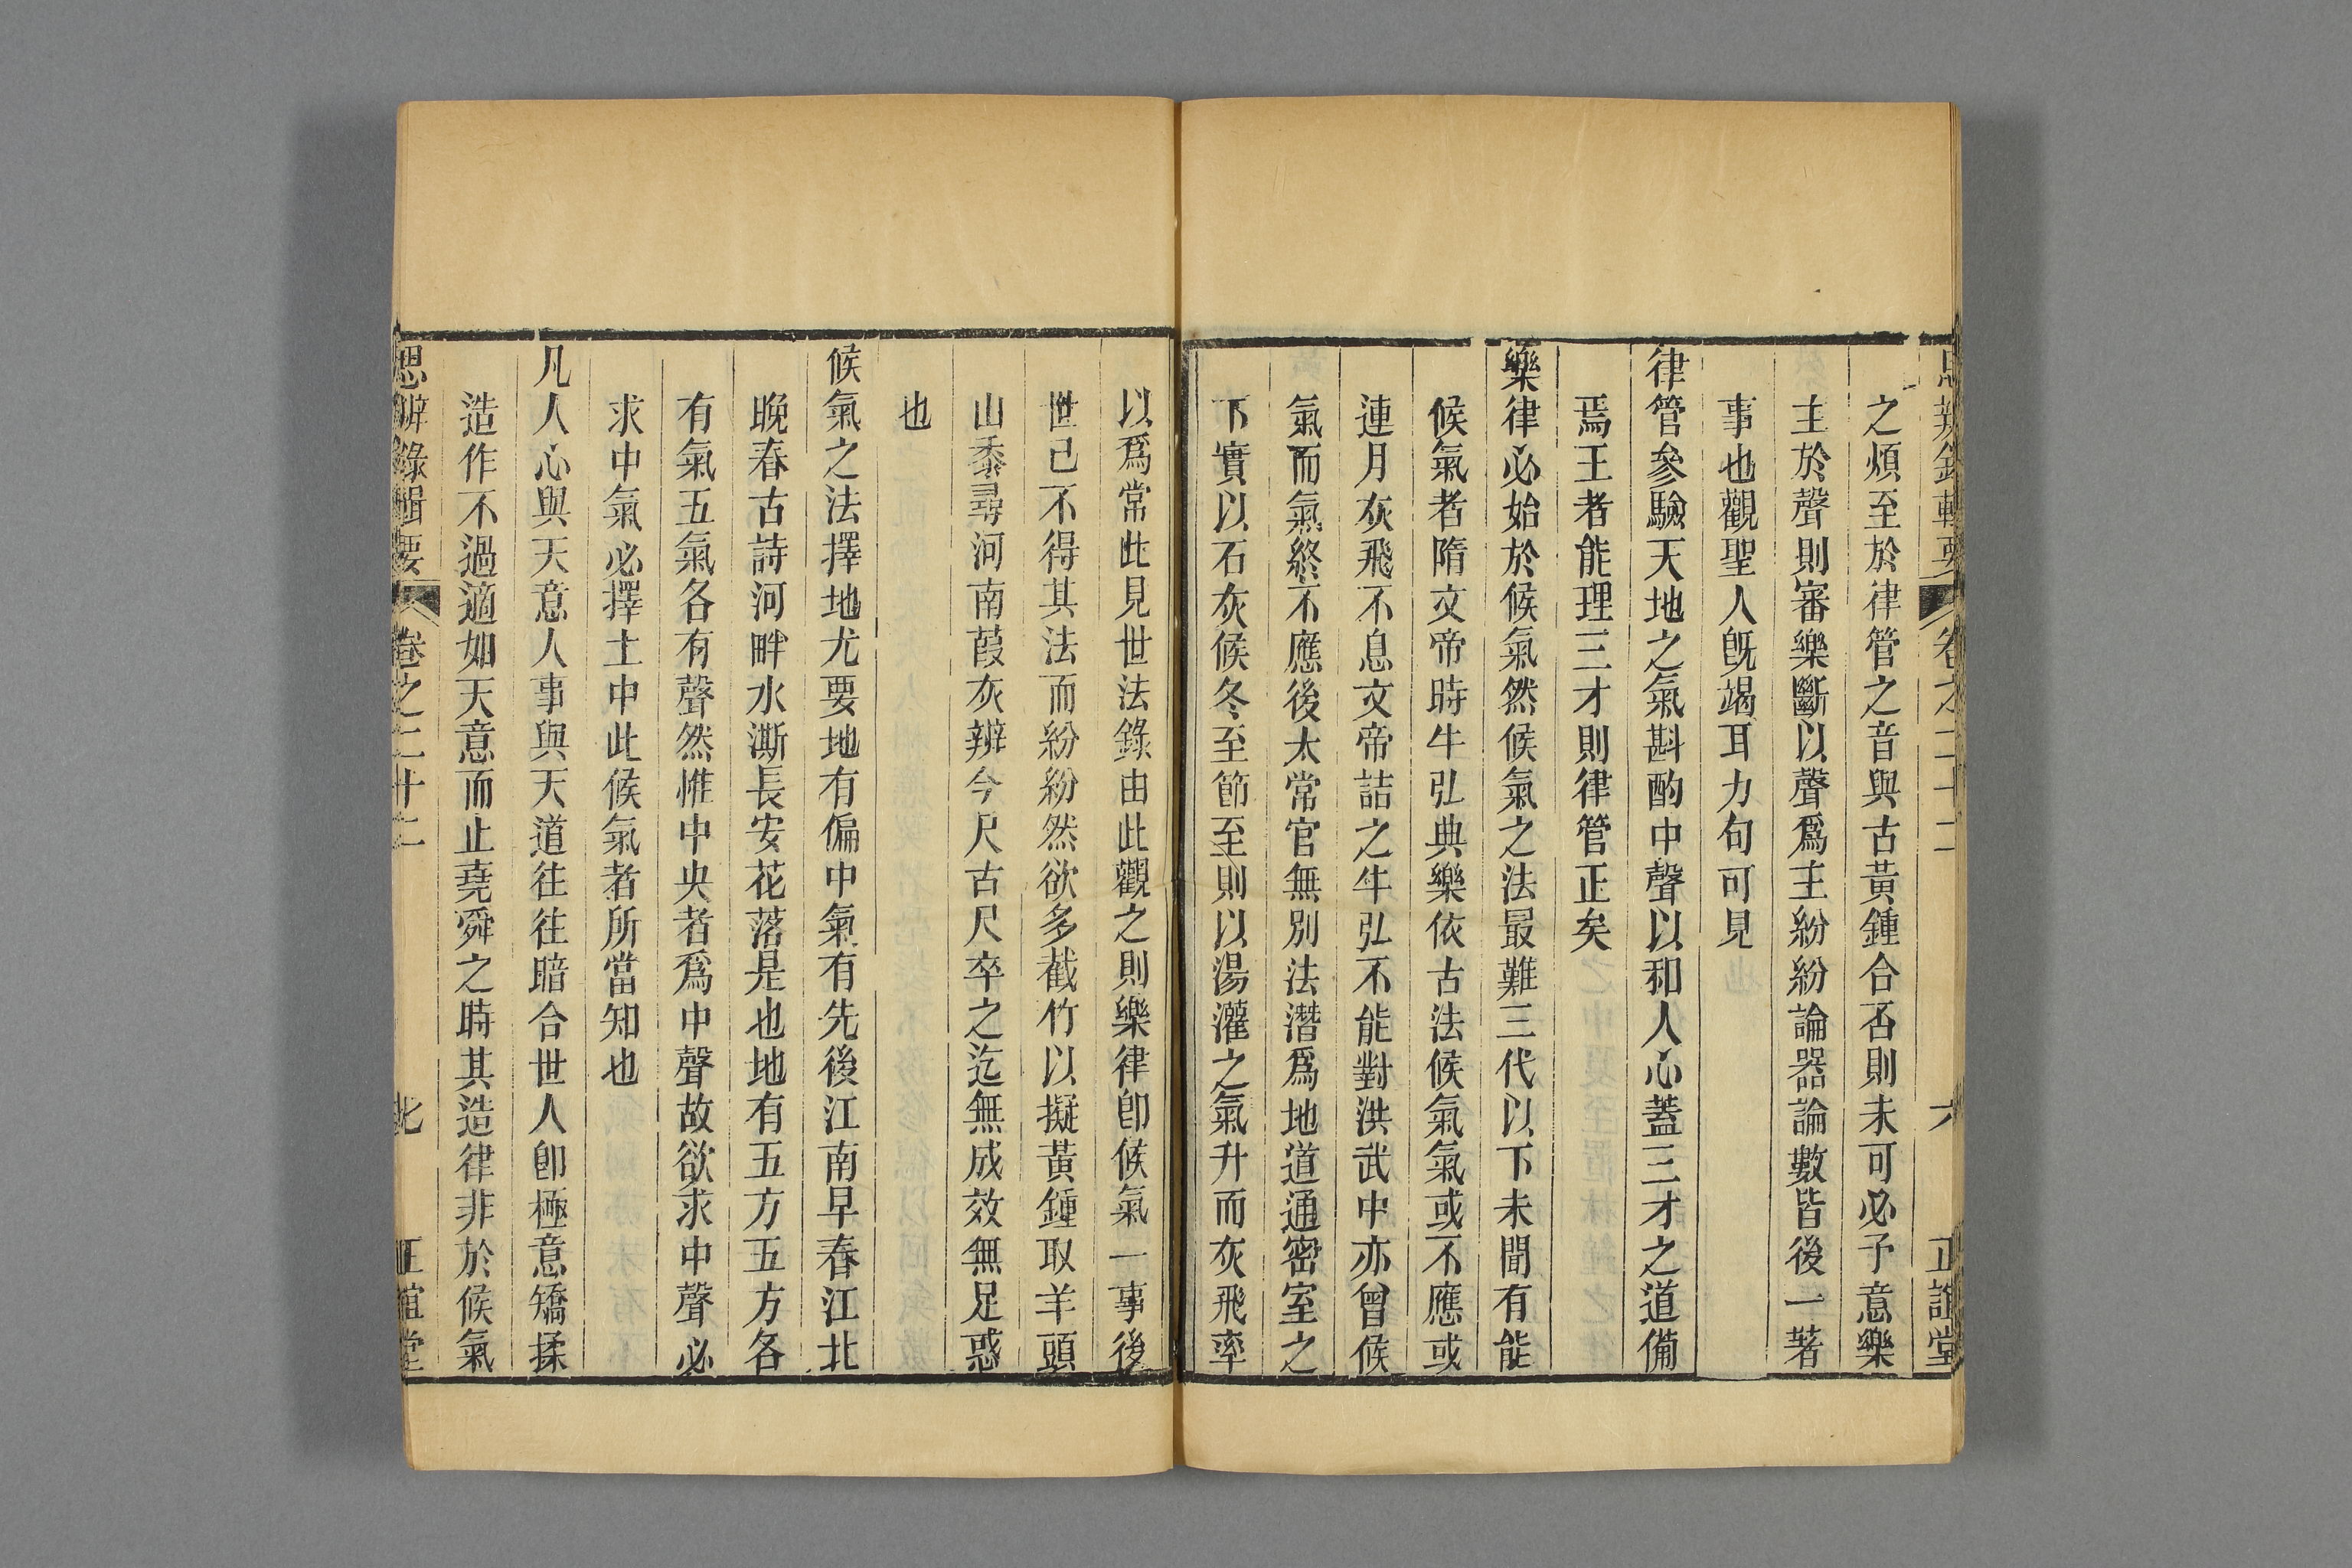 思辨錄輯要 卷之二十二 六 正誼堂
之煩至於律管之音與古黃鍾合否則未可必予意樂
主於聲則審樂斷以聲爲主紛紛論器論數皆後一著
事也觀聖人旣竭耳力句可見
律管參驗天地之氣斟酌中聲以和人心蓋三才之道備
焉王者能理三才則律管正矣
樂律必始於候氣然候氣之法最難三代以下未聞有能
候氣者隋文帝時牛弘典樂依古法候氣氣或不應或
連月灰飛不息文帝詰之牛弘不能對洪武中亦曾候
氣而氣終不應後太常官無別法潛爲地道通密室之
下實以石灰候冬至節至則以湯灌之氣升而灰飛率
以爲常此見世法錄由此觀之則樂律卽候氣一事後
世已不得其法而紛紛然欲多截竹以擬黃鍾取羊頭
山黍尋河南葭灰辨今尺古尺卒之迄無成效無足惑
也
候氣之法擇地尤要地有偏中氣有先後江南早春江北
晚春古詩河畔水澌長安花落是也地有五方五方各
有氣五氣各有聲然惟中央者爲中聲故欲求中聲必
求中氣必擇土中此候氣者所當知也
凡人心與天意人事與天道往往暗合世人卽極意矯揉
造作不過適如天意而止堯舜之時其造律非於候氣
思辨錄輯要 卷之二十二 正誼堂